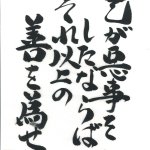 己が悪事を
したならば
それ以上の
善を為せ